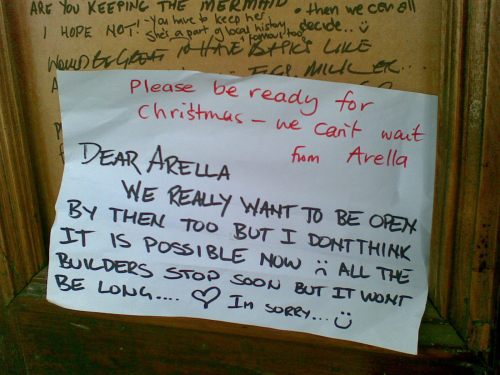 ARE YOU KEEPING THE MERMAID
• then we can all
I HOPE NOT! - you have to keep her decide..
She's a part of local history
+ famous too
WOULD BE GREAT TO HAVE BASICS LIKE
EGGS, MILK, ETC...
Please be ready for
Christmas - we can't wait
from Arella
DEAR ARELLA
WE REALLY WANT TO BE OPEN
BY THEN TOO BUT I DONT THINK
IT IS POSSIBLE NOW :( ALL THE
BUILDERS STOP SOON BUT IT WONT
BE LONG.... ♡ IM SORRY... :)